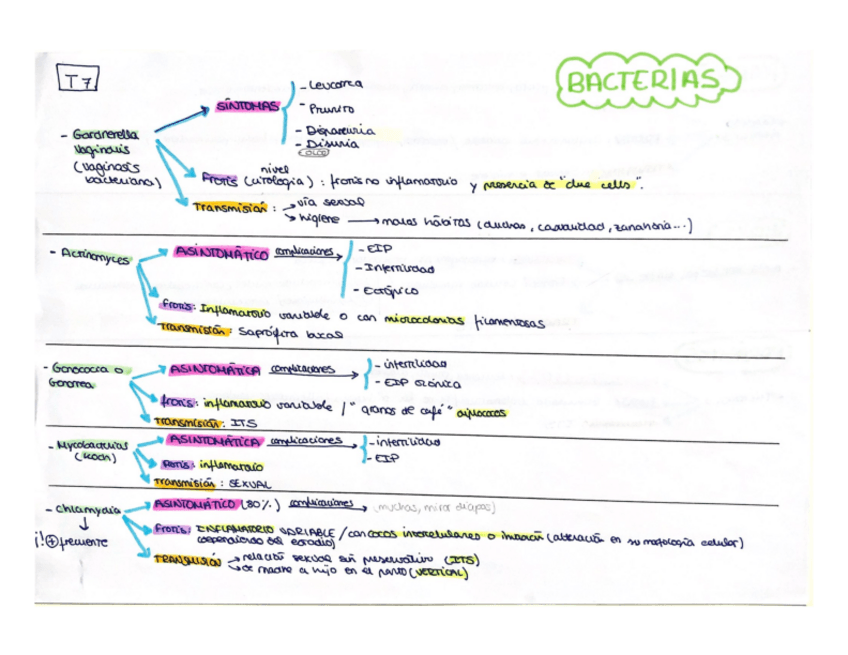 T7
BACTERIAS
SÍNTOMAS
- Leucorrea
- Prurito
- Dispareunia
- Disuria
- Gardnerella
vaginalis
(vaginosis
bacteriana)
nivel
Frotis (citología) : frotis no inflamatorio y presencia de "clue cells".
Transmisión : → vía sexual
→ higiene → malos hábitos (duchas, castidad, zanahoria...)
- Actinomyces
ASINTOMÁTICO complicaciones
- EIP
- Infertilidad
- Ectópico
Frotis: Inflamatorio variable o con microcolonias filamentosas
Transmisión: Saprófita bucal
- Gonococia o
Gonorrea
ASINTOMÁTICA complicaciones
- infertilidad
- EIP crónica
frotis: inflamatorio variable / "granos de café" diplococos
Transmisión: ITS
- Mycobacterias
(Koch)
ASINTOMÁTICA complicaciones
- infertilidad
- EIP
Frotis: inflamatorio
Transmisión: SEXUAL
- Chlamydia
¡! ⊕ frecuente
ASINTOMÁTICO (80%) complicaciones → (muchas, mirar diapos)
Frotis: INFLAMATORIO VARIABLE / con cocos intracelulares o inclusión (alteración en su morfología celular)
(dependiendo del estadio)
TRANSMISIÓN → relación sexual sin preservativo (ITS)
→ de madre a hijo en el parto (VERTICAL)